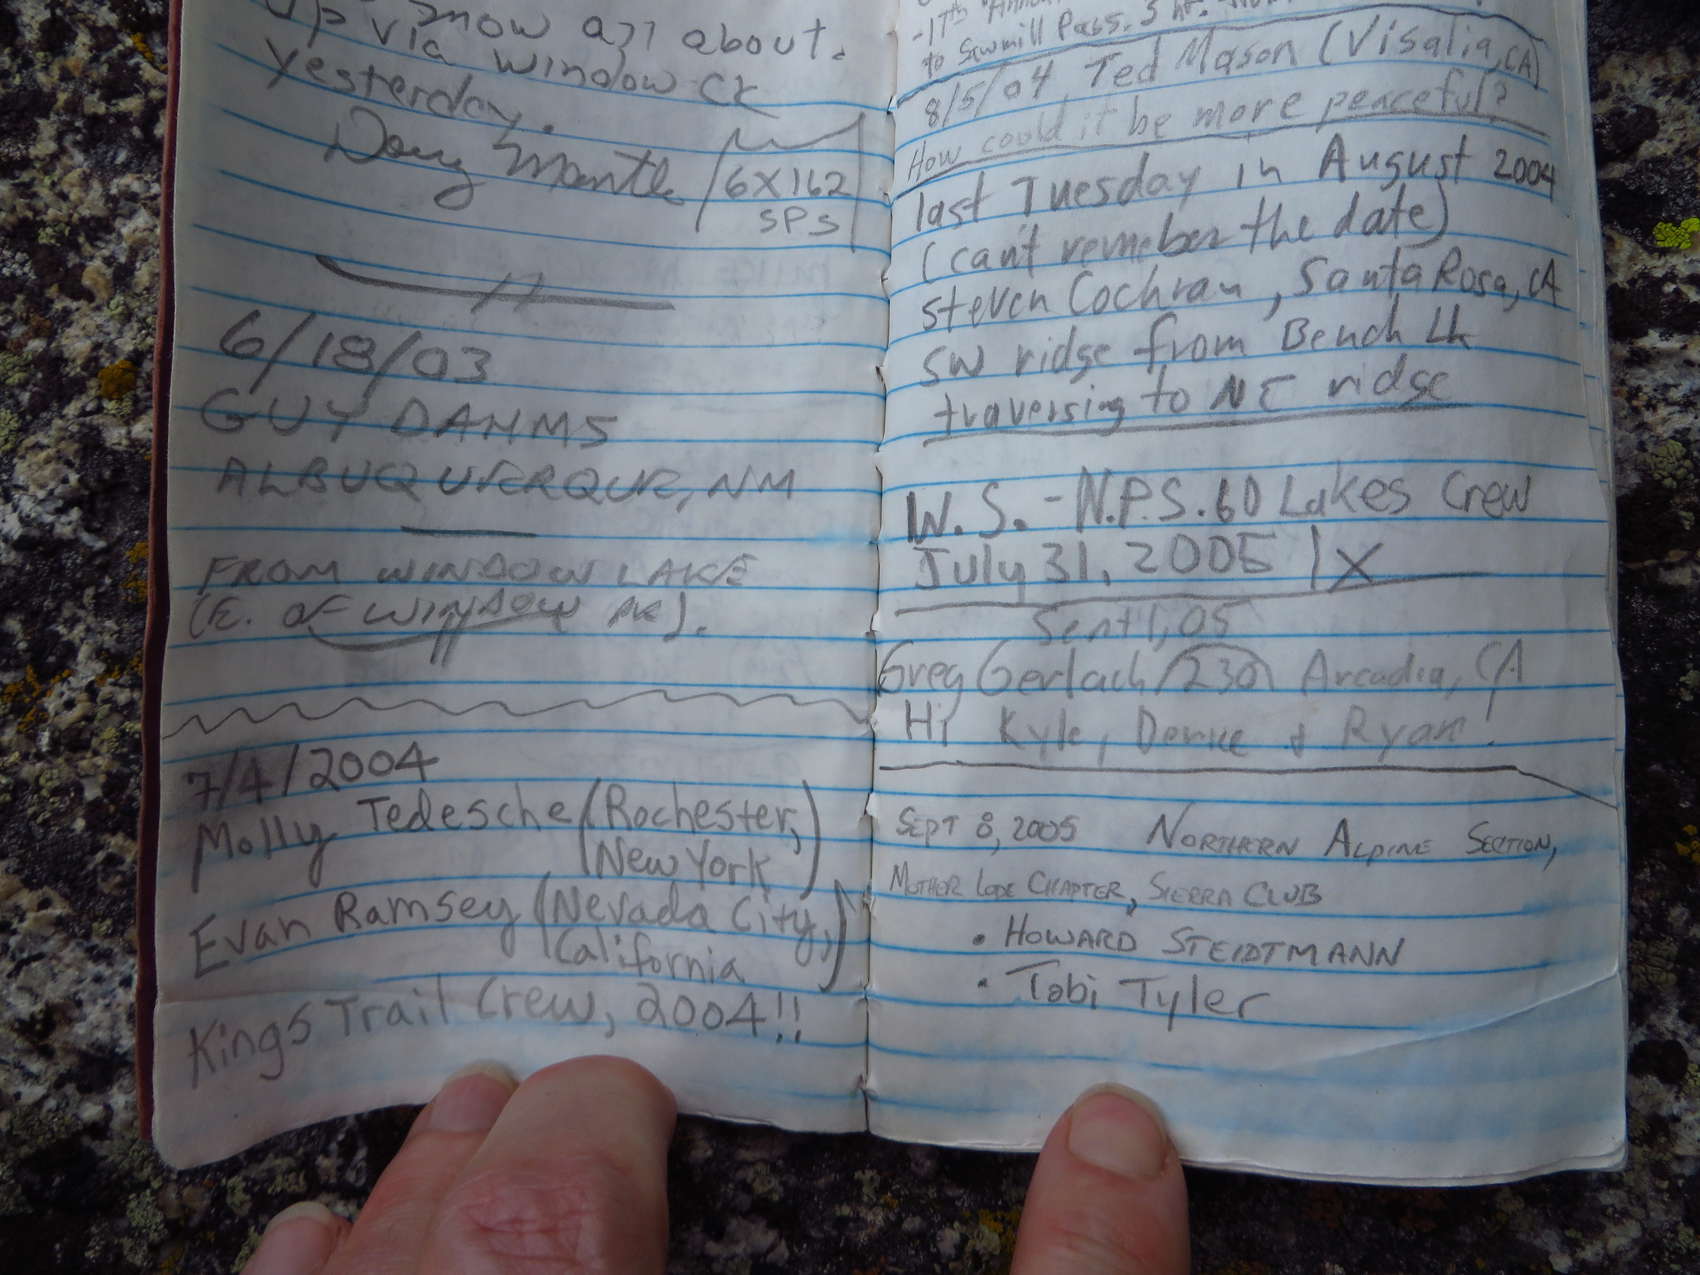 up snow all about.
up via window ck
yesterday.
Doug Mantle
6X162
SPS
6/18/03
GUY DAHMS
ALBUQUERQUE, NM
FROM WINDOW LAKE
(E. OF WINDOW PK).
7/4/2004
Molly Tedesche (Rochester,
New York)
Evan Ramsey (Nevada City,
California)
Kings Trail Crew, 2004!!
-17th Annual
to Sawmill Pass. 3
8/5/04 Ted Mason (Visalia, CA)
How could it be more peaceful?
last Tuesday in August 2004
(can't remeber the date)
Steven Cochran, Santa Rosa, CA
SW ridge from Bench Lk
traversing to NE ridge
W.S. - N.P.S. 60 Lakes Crew
July 31, 2005 1x
Sept 1, 05
Greg Gerlach /230 Arcadia, CA
Hi Kyle, & Ryan!
SEPT 8, 2005 NORTHERN ALPINE SECTION,
MOTHER LODE CHAPTER, SIERRA CLUB
• HOWARD STEIDTMANN
• Tobi Tyler